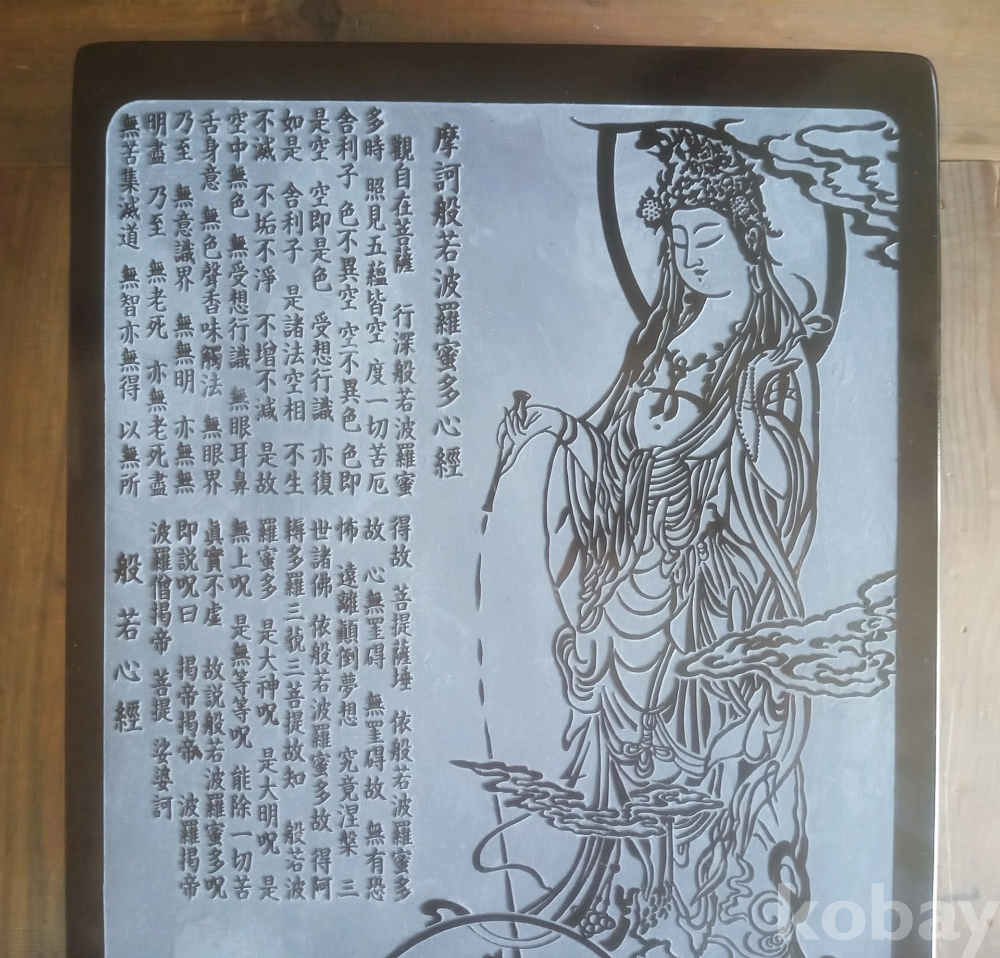 摩訶般若波羅蜜多心經
觀自在菩薩 行深般若波羅蜜
多時 照見五蘊皆空 度一切苦厄
舍利子 色不異空 空不異色 色即
是空 空即是色 受想行識 亦復
如是 舍利子 是諸法空相 不生
不滅 不垢不淨 不增不減 是故
空中無色 無受想行識 無眼耳鼻
舌身意 無色聲香味觸法 無眼界
乃至 無意識界 無無明 亦無無
明盡 乃至 無老死 亦無老死盡
無苦集滅道 無智亦無得 以無所
得故 菩提薩埵 依般若波羅蜜多
故 心無罣碍 無罣碍故 無有恐
怖 遠離顚倒夢想 究竟涅槃 三
世諸佛 依般若波羅蜜多故 得阿
耨多羅三藐三菩提故知 般若波
羅蜜多 是大神呪 是大明呪 是
無上呪 是無等等呪 能除一切苦
眞實不虛 故説般若波羅蜜多呪
即説呪曰 揭帝揭帝 波羅揭帝
波羅僧揭帝 菩提 娑婆訶
般若心經
kobay